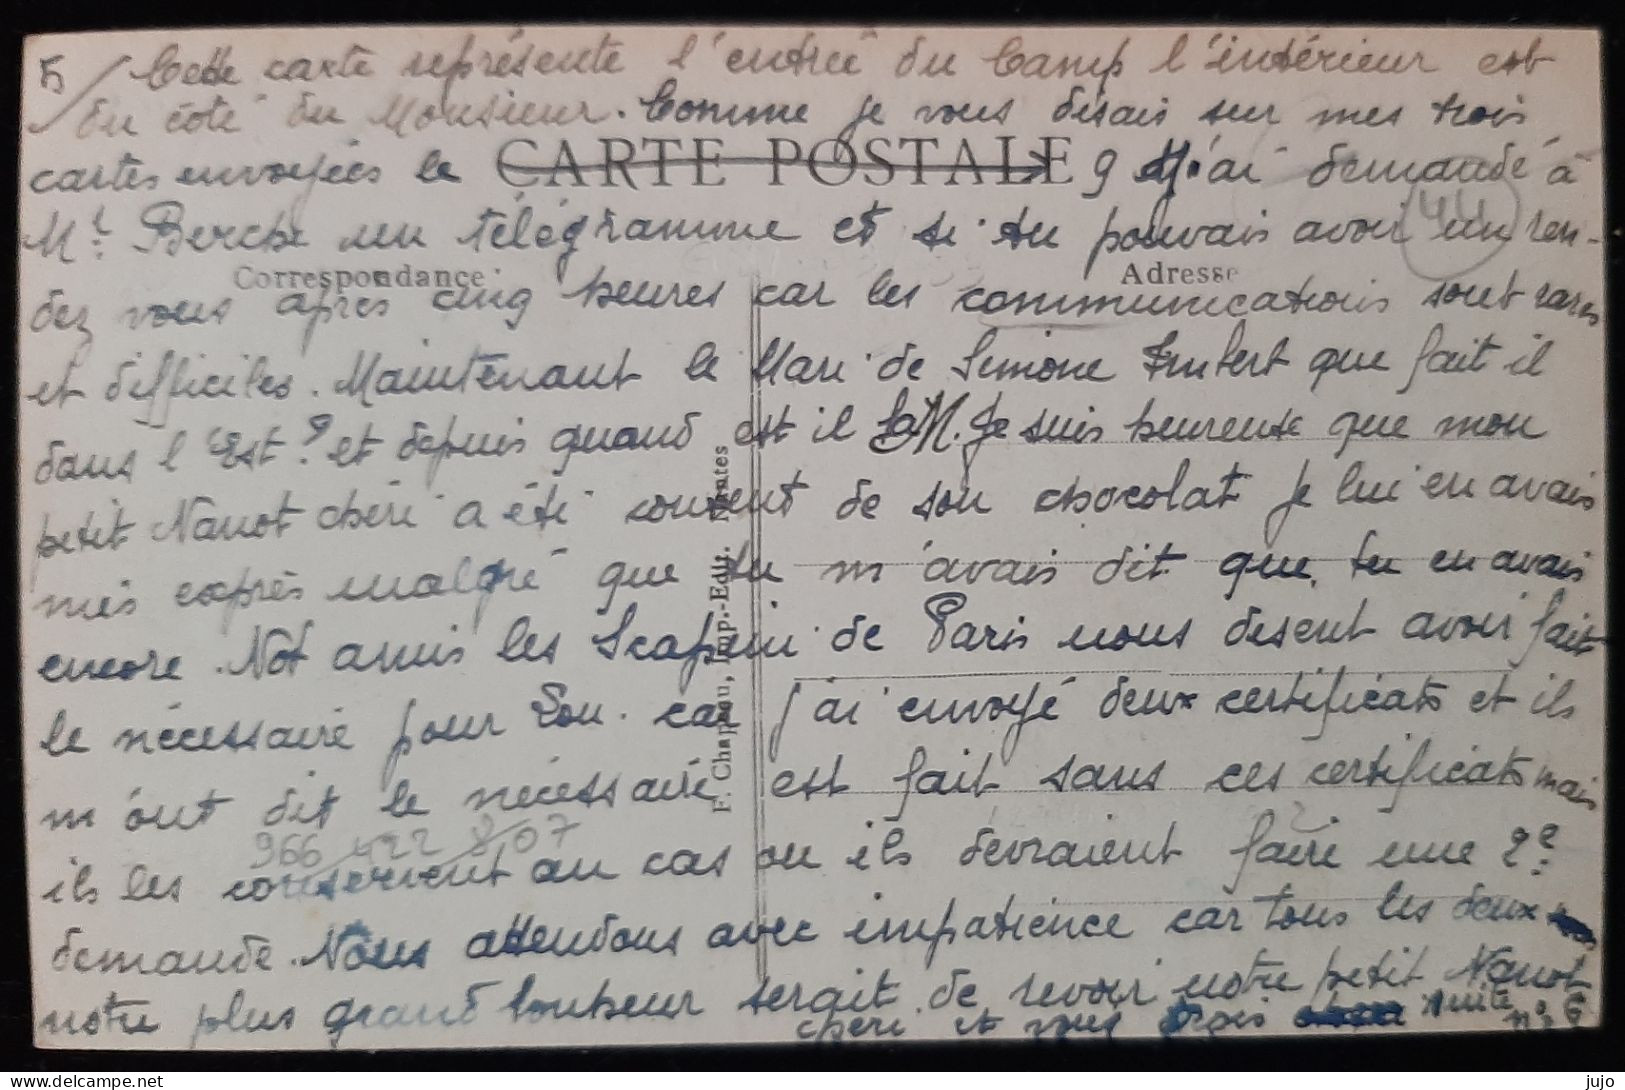 5/ Cette carte représente l'entrée du Camp l'intérieur est
du côté du Monsieur. Comme je vous disais sur mes trois
cartes envoyées le CARTE POSTALE 9 M'ai demandé à
Mr. Berche un télégramme et si tu pouvais avoir un ren-
Correspondance Adresse
dez vous après cinq heures car les communications sont rares
et difficiles. Maintenant le Mari de Simone Imbert que fait il
dans l'Est? et depuis quand est il M. Je suis heureuse que mon
petit Nanot chéri a été content de son chocolat je lui en avais
mis exprès malgré que tu m'avais dit que tu en avais
encore. Not amis les Scapini de Paris nous disent avoir fait
le nécessaire pour Lou. car j'ai envoyé deux certificats et ils
m'ont dit le nécessaire est fait sans ces certificats mais
966 422 807
ils les conservent au cas ou ils devraient faire une 2e
demande. Nous attendons avec impatience car tous les deux
notre plus grand bonheur serait de revoir notre petit Nanot
chéri et vous trois suite no 6
F. Chapeau, Imp.-Edit. Nantes
44